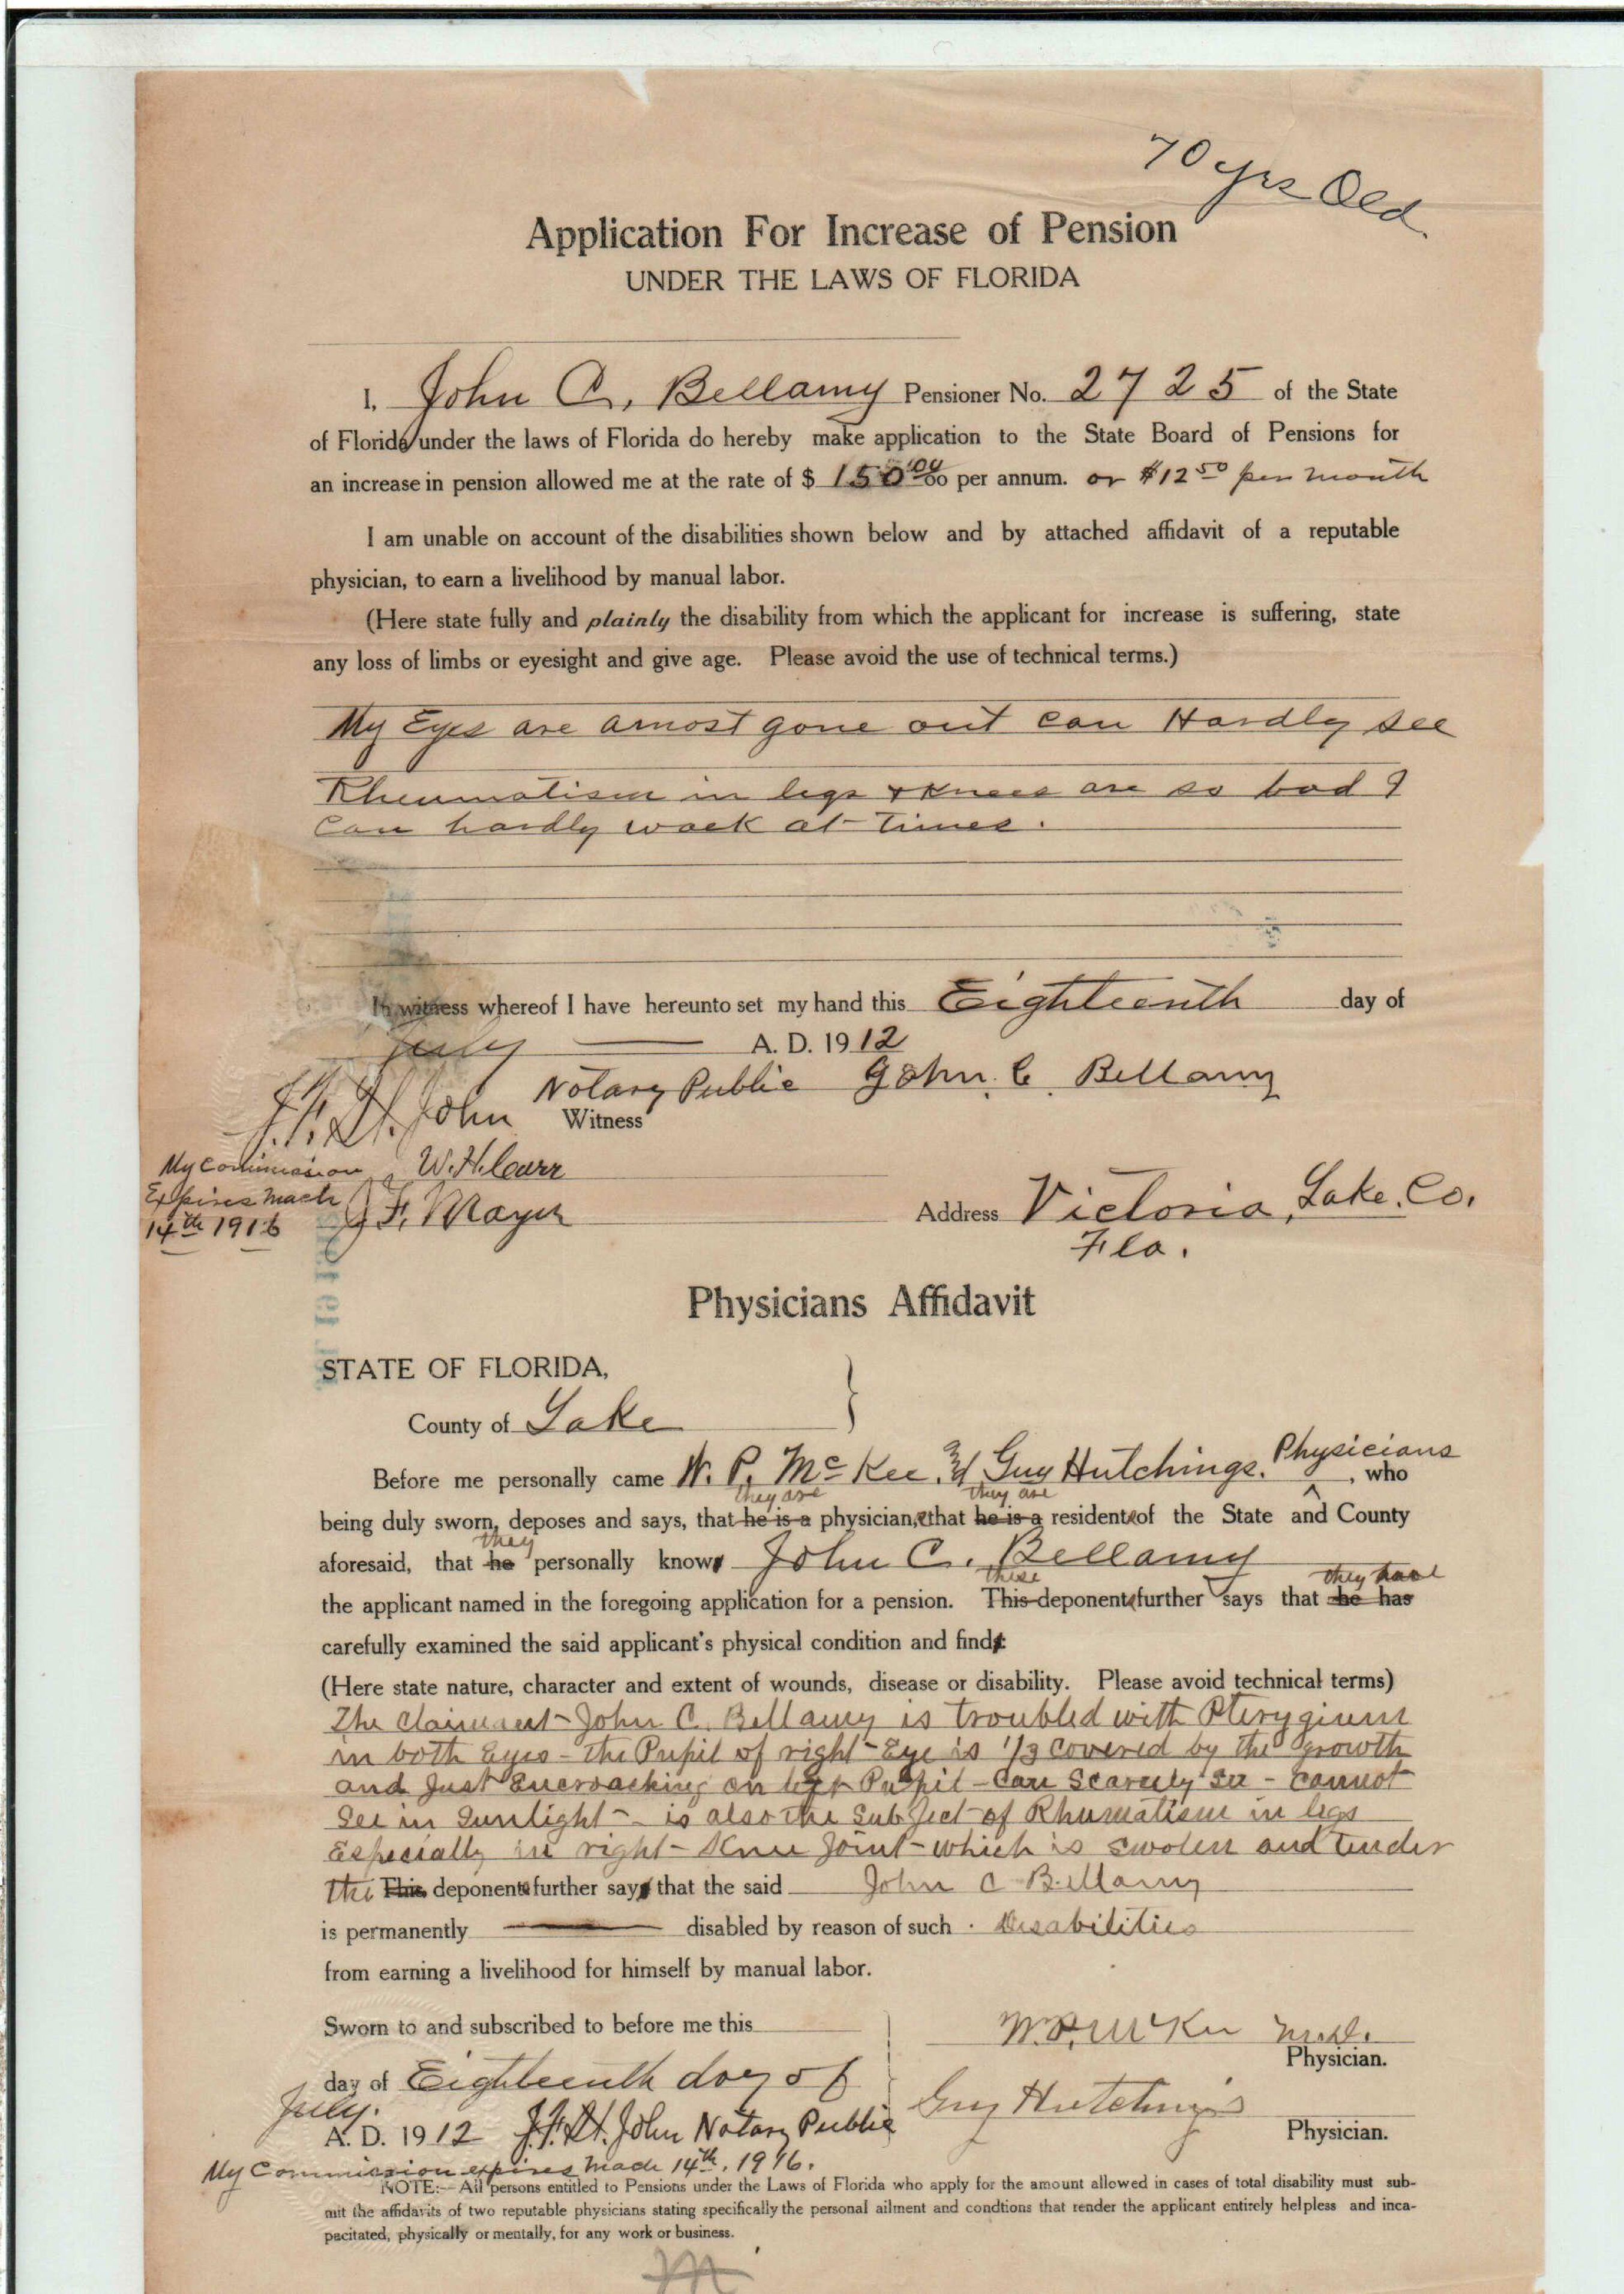 70 yrs Old.
Application For Increase of Pension
UNDER THE LAWS OF FLORIDA
I, John C. Bellamy Pensioner No. 2725 of the State
of Florida under the laws of Florida do hereby make application to the State Board of Pensions for
an increase in pension allowed me at the rate of $ 150.00 per annum. or $12 50 per month
I am unable on account of the disabilities shown below and by attached affidavit of a reputable
physician, to earn a livelihood by manual labor.
(Here state fully and plainly the disability from which the applicant for increase is suffering, state
any loss of limbs or eyesight and give age. Please avoid the use of technical terms.)
My Eyes are amost gone out can Hardly see
Rheumatism in legs & Knees are so bad I
Can hardly walk at times.
In witness whereof I have hereunto set my hand this Eighteenth day of
July A. D. 1912
J. F. St. John Notary Public John. C. Bellamy
Witness
My Commission W. H. Carr
Expires Mach J. F. Mayer
14th 1916
Address Victoria, Lake. Co.
Fla.
Physicians Affidavit
STATE OF FLORIDA,
County of Lake
Before me personally came W. P. McKee. & Guy Hutchings. Physicians, who
they are they are
being duly sworn, deposes and says, that he is a physician, that he is a residents of the State and County
they
aforesaid, that he personally know John C. Bellamy
these they have
the applicant named in the foregoing application for a pension. This deponents further says that he has
carefully examined the said applicant's physical condition and find:
(Here state nature, character and extent of wounds, disease or disability. Please avoid technical terms)
The claimant John C. Bellamy is troubled with Pterygium
in both Eyes - the Pupil of right Eye is 1/3 covered by the growth
and Just Encroaching on left Pupil - Can Scarcely See - cannot
See in Sunlight - is also the Subject of Rhumatism in legs
Especially in right - Knee Joint - which is swolen and tender
the This deponents further say that the said John C Bellamy
is permanently disabled by reason of such Disabilities
from earning a livelihood for himself by manual labor.
Sworn to and subscribed to before me this
W. P. McKee M.D.
Physician.
day of Eighteenth day of
July.
Guy Hutchings
Physician.
A. D. 1912 J. F. St. John Notary Public
My Commission expires Mach 14th, 1916.
NOTE:—All persons entitled to Pensions under the Laws of Florida who apply for the amount allowed in cases of total disability must sub-
mit the affidavits of two reputable physicians stating specifically the personal ailment and condtions that render the applicant entirely helpless and inca-
pacitated, physically or mentally, for any work or business.